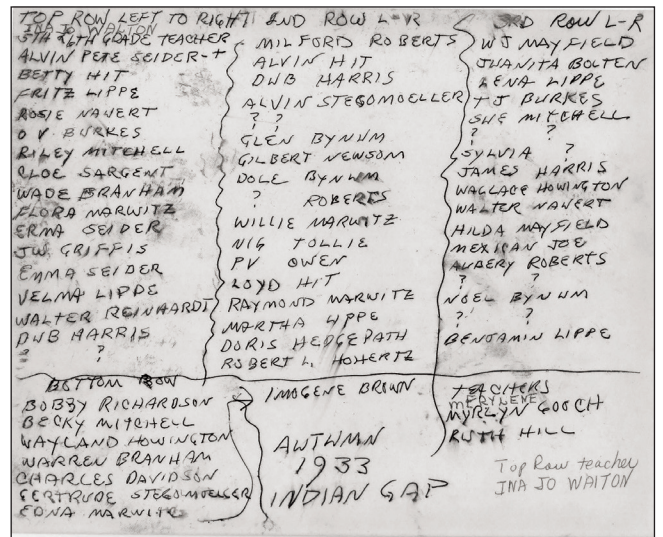 TOP ROW LEFT TO RIGHT
INA JO WAITON
5TH & 6TH GRADE TEACHER
ALVIN PETE SEIDER-T
BETTY HIT
FRITZ LIPPE
ROSIE NAVERT
O V BURKES
RILEY MITCHELL
CLOE SARGENT
WADE BRANHAM
FLORA MARWITZ
ERMA SEIDER
JW GRIFFIS
EMMA SEIDER
VELMA LIPPE
WALTER REINHAARDT
DUB HARRIS
? ?
2ND ROW L-R
MILFORD ROBERTS
ALVIN HIT
DUB HARRIS
ALVIN STEGOMOELLER
? ?
GLEN BYNUM
GILBERT NEWSOM
DOLE BYNUM
? ROBERTS
WILLIE MARWITZ
NIG TOLLIE
PV OWEN
LOYD HIT
RAYMOND MARWITZ
MARTHA LIPPE
DORIS HEDGEPATH
ROBERT L. HOHERTZ
3RD ROW L-R
WJ MAYFIELD
JUANITA BOLTEN
LENA LIPPE
TJ BURKES
SUE MITCHELL
? ?
SYLVIA ?
JAMES HARRIS
WAGLACE HOWINGTON
WALTER NAVERT
HILDA MAYFIELD
MEXICAN JOE
AUBERY ROBERTS
? ?
NOEL BYNUM
? ?
BENJAMIN LIPPE
BOTTOM ROW
BOBBY RICHARDSON
BECKY MITCHELL
WAYLAND HOWINGTON
WARREN BRANHAM
CHARLES DAVIDSON
GERTRUDE STEGOMOELLER
EDNA MARWITZ
IMOGENE BROWN
AUTUMN
1933
INDIAN GAP
TEACHERS
MERYLENE
MYRLYN GOOCH
RUTH HILL
Top Row teacher
INA JO WAITON